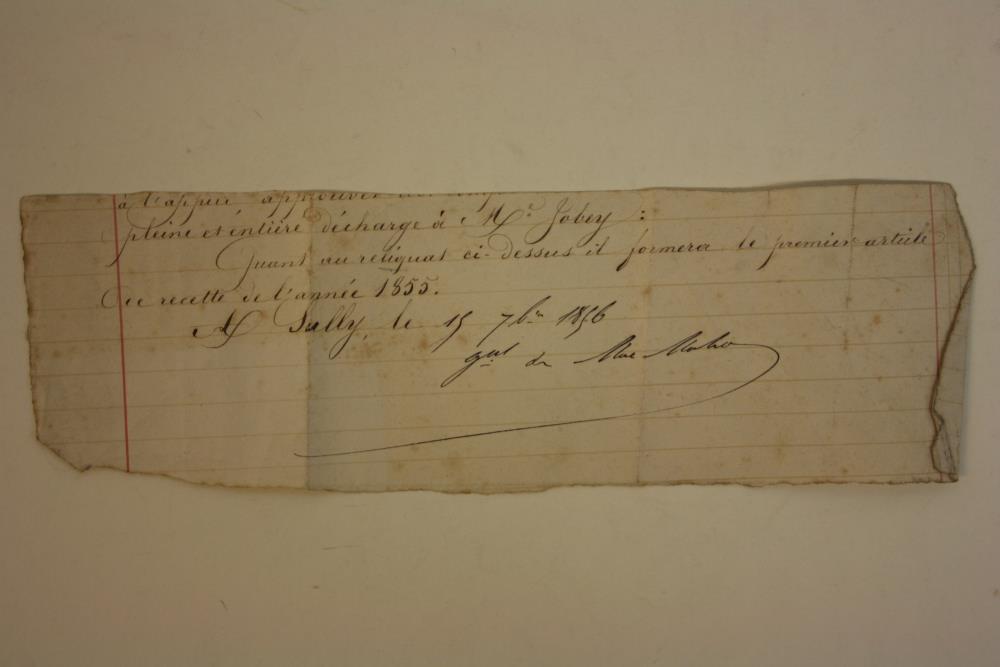 à l'appui approuver
pleine et entière décharge à Mr Jobey :
Quant au reliquat ci-dessus il formera le premier article
de recette de l'année 1855.
A Sully, le 15 7bre 1856
gal de Mac Maho